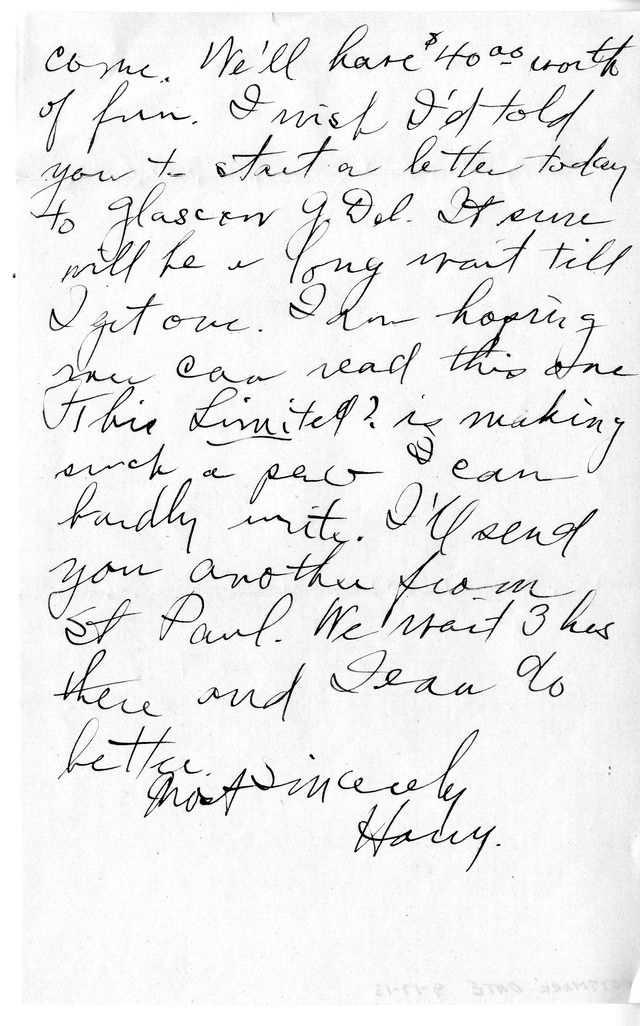 come. We'll have $40.00 worth
of fun. I wish I'd told
you to start a letter today
to Glascow G. Del. It sure
will be a long wait till
I get one. I am hoping
you can read this one
This Limited? is making
such a pace I can
hardly write. I'll send
you another from
St Paul. We wait 3 hrs
there and I can do
better.
Most sincerely
Harry.
POSTMARK DATE 9-17-13